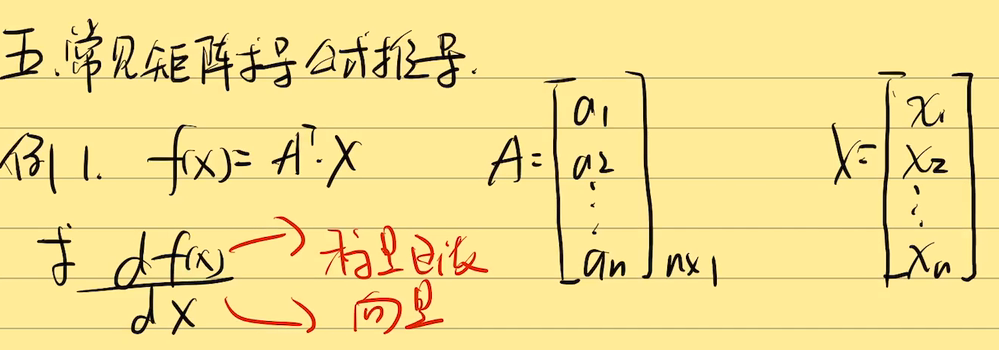 五.常见矩阵求导公式推导.
例1. f(x)=Aᵀ·X A=[a1 a2 ⋮ an]n×1 X=[x1 x2 ⋮ xn]
求 df(x)/dX → 标量函数
→ 向量